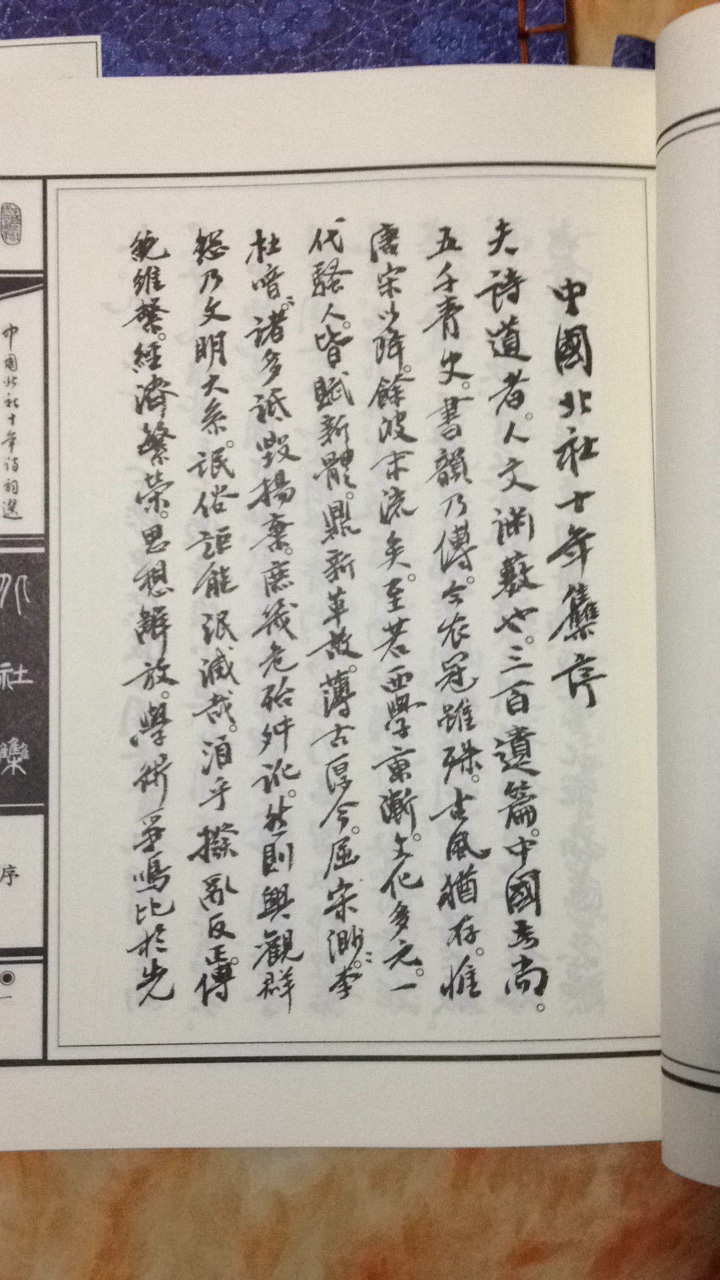 中國北社十年集序
夫詩道者。人文淵藪也。三百遺篇。中國尚。
五千青史。書韻乃傳。今衣冠雖殊。古風猶存。惟
唐宋以降。餘波末流矣。至若西學東漸。文化多元。一
代騷人。皆賦新體。鼎新革故。薄古厚今。屈宋渺〻。李
杜喑〻。諸多詆毀揚棄。庶幾危殆舛訛。然則興觀群
怨乃文明大系。氓俗詎能泯滅哉。洎乎撥亂反正。傳
統維繫。經濟繁榮。思想解放。學術爭鳴比於先
中國北社十年詩詞選
北社集
序
一